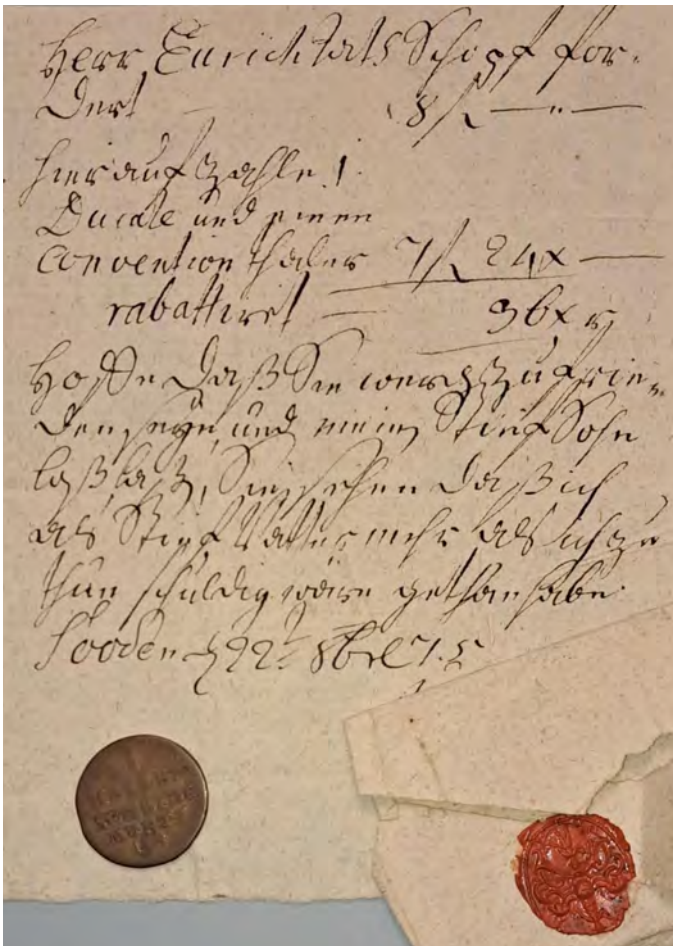 Herr Euricht Rats Schopf for-
dert 8 f — " —
hierauf zahle 1
Ducate und einen
Convention thaler 7 f 24 x —
rabattiret — 36 x r
Hoffe daß Sie werd zufrie-
den seyn, und mein Stief Sohn
laß, Sie sehen daß ich
als Stief Vatter mehr als ich zu
thun schuldig wäre gethan habe.
Sooden d 22t 8br